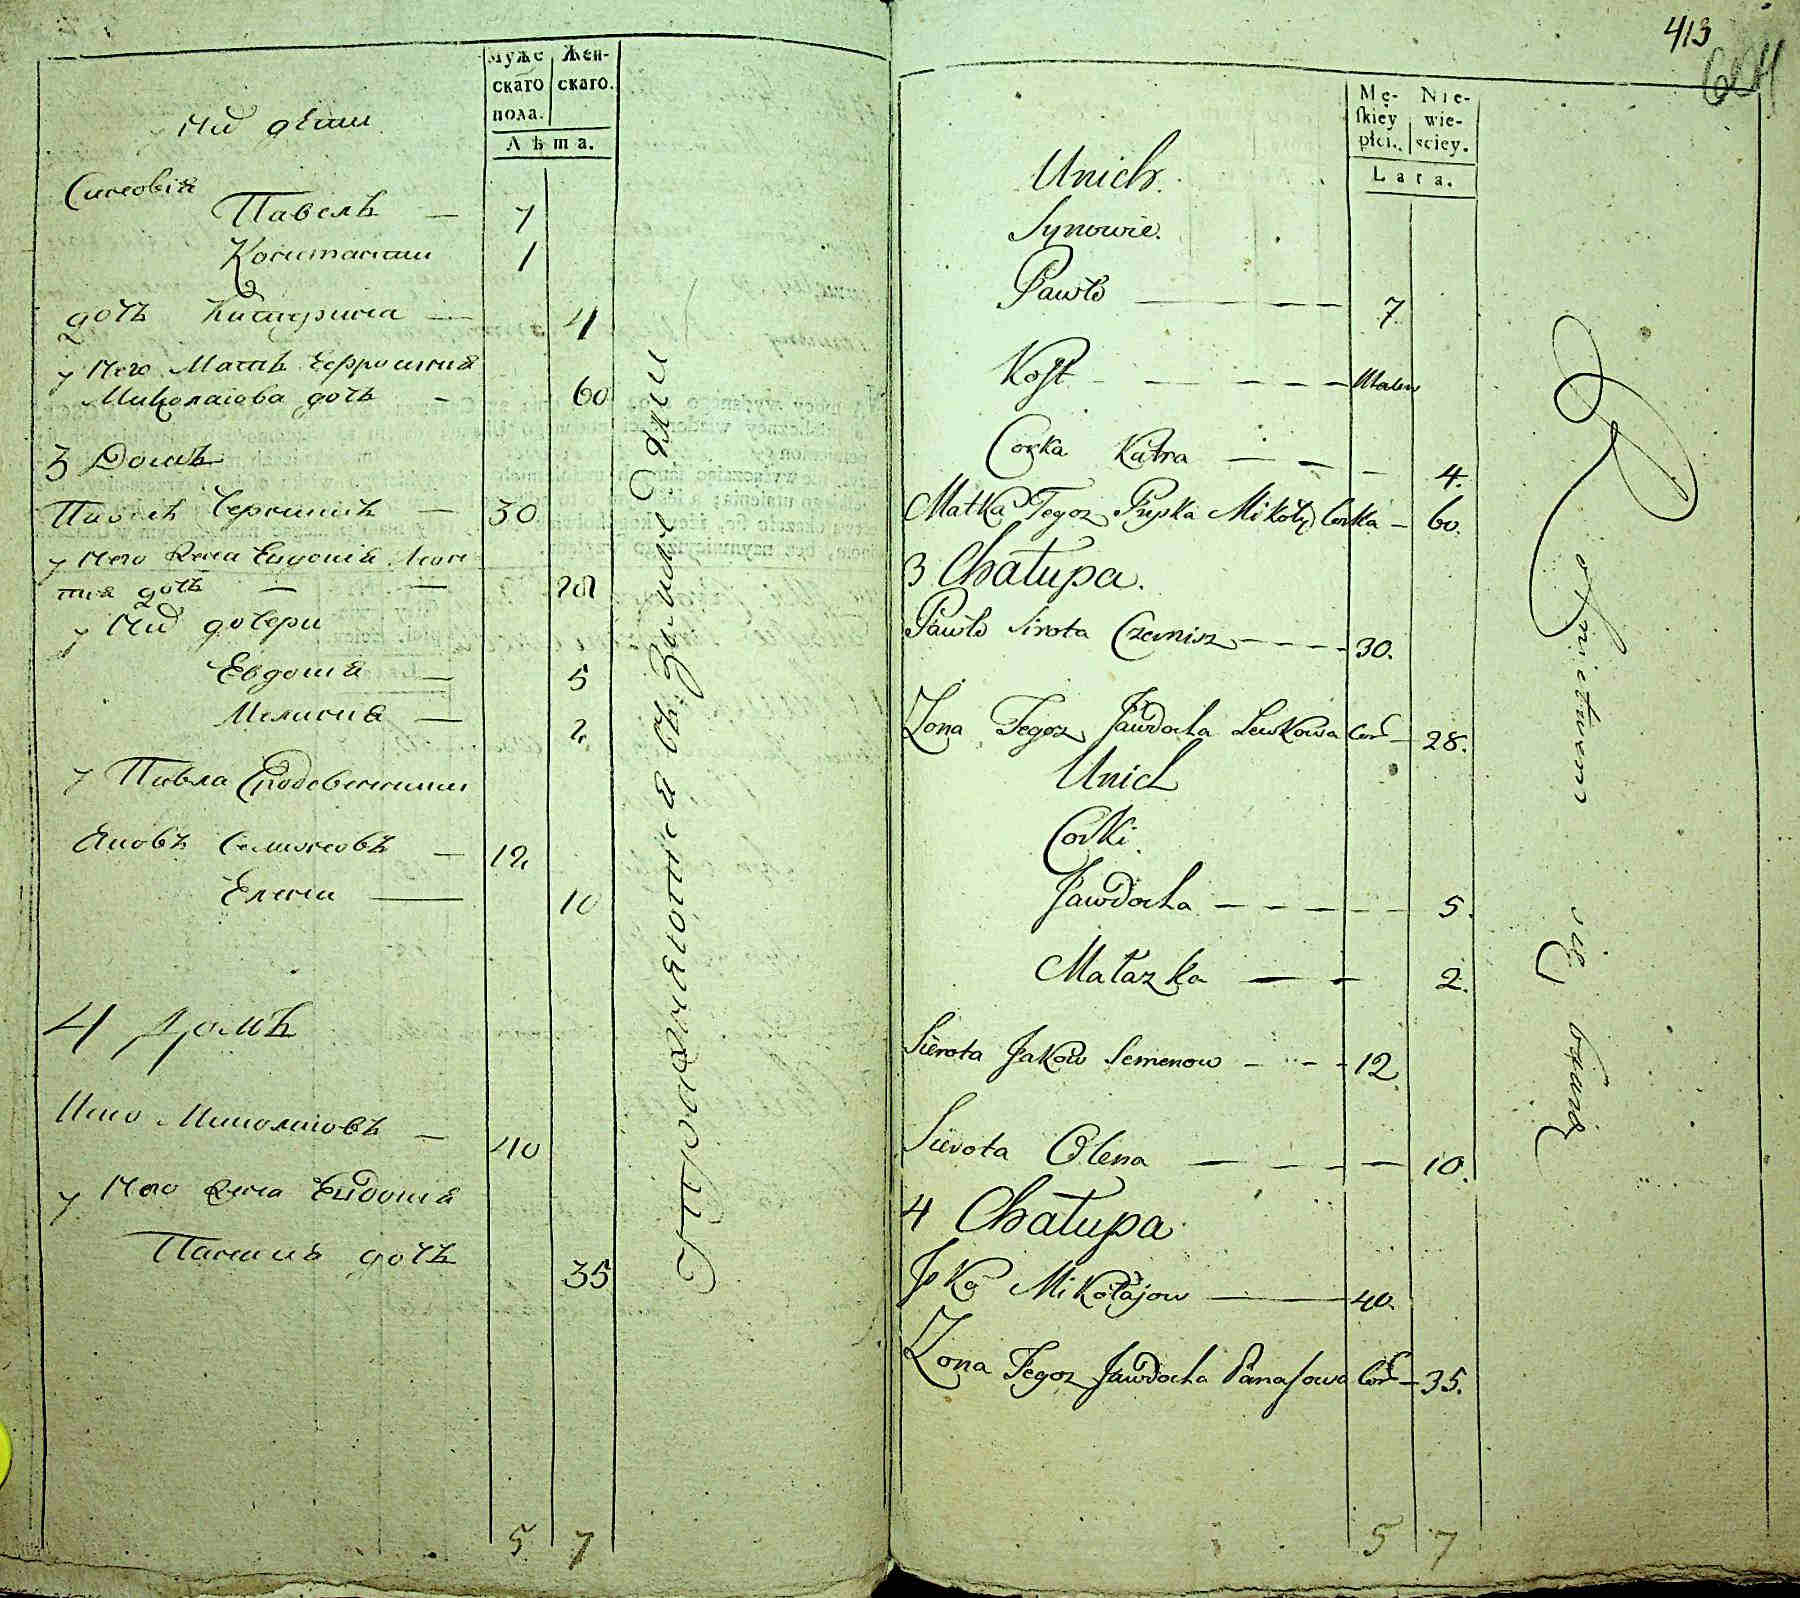 Муже
скаго
пола.
Жен-
скаго.
Лѣта.
у нихъ дѣти
Синовія
Павелъ — 7
Константин 1
дочь Катерина — 4
у него Мать Ефросиния
Миколаева дочь - 60
3 Домъ
Павелъ — 30
у него жена Евдокія Леон
тия дочь — — 28
у нихъ дочери
Евдокія — 5
Меланія — 2
у Павла
Яковъ Семеновъ — 12
Елена — 10
4 Домъ
Миколаіовъ — 40
у него жена Евдокія
дочь 35
5 7
413
Mę-
skiey
płci.
Nie-
wie-
sciey.
Lata.
Unich.
Synowie.
Pawło — 7.
Kost - — — — —
Corka Katra — — — 4.
Matka Tegoz Pryska Mikoły Corka — 60.
3 Chałupa.
Pawło sirota — — — — 30.
Zona Tegoz Jawdocha Lewkowa Cor — 28.
Unich
Corki.
Jawdocha — — — — 5.
Małazka — — 2.
Sierota Jakow Semenow — — — 12
Sierota Olena — — — — 10.
4 Chałupa
Mikołajow — 40.
Zona Tegoz Jawdocha Panasowa Cor — 35.
5 7